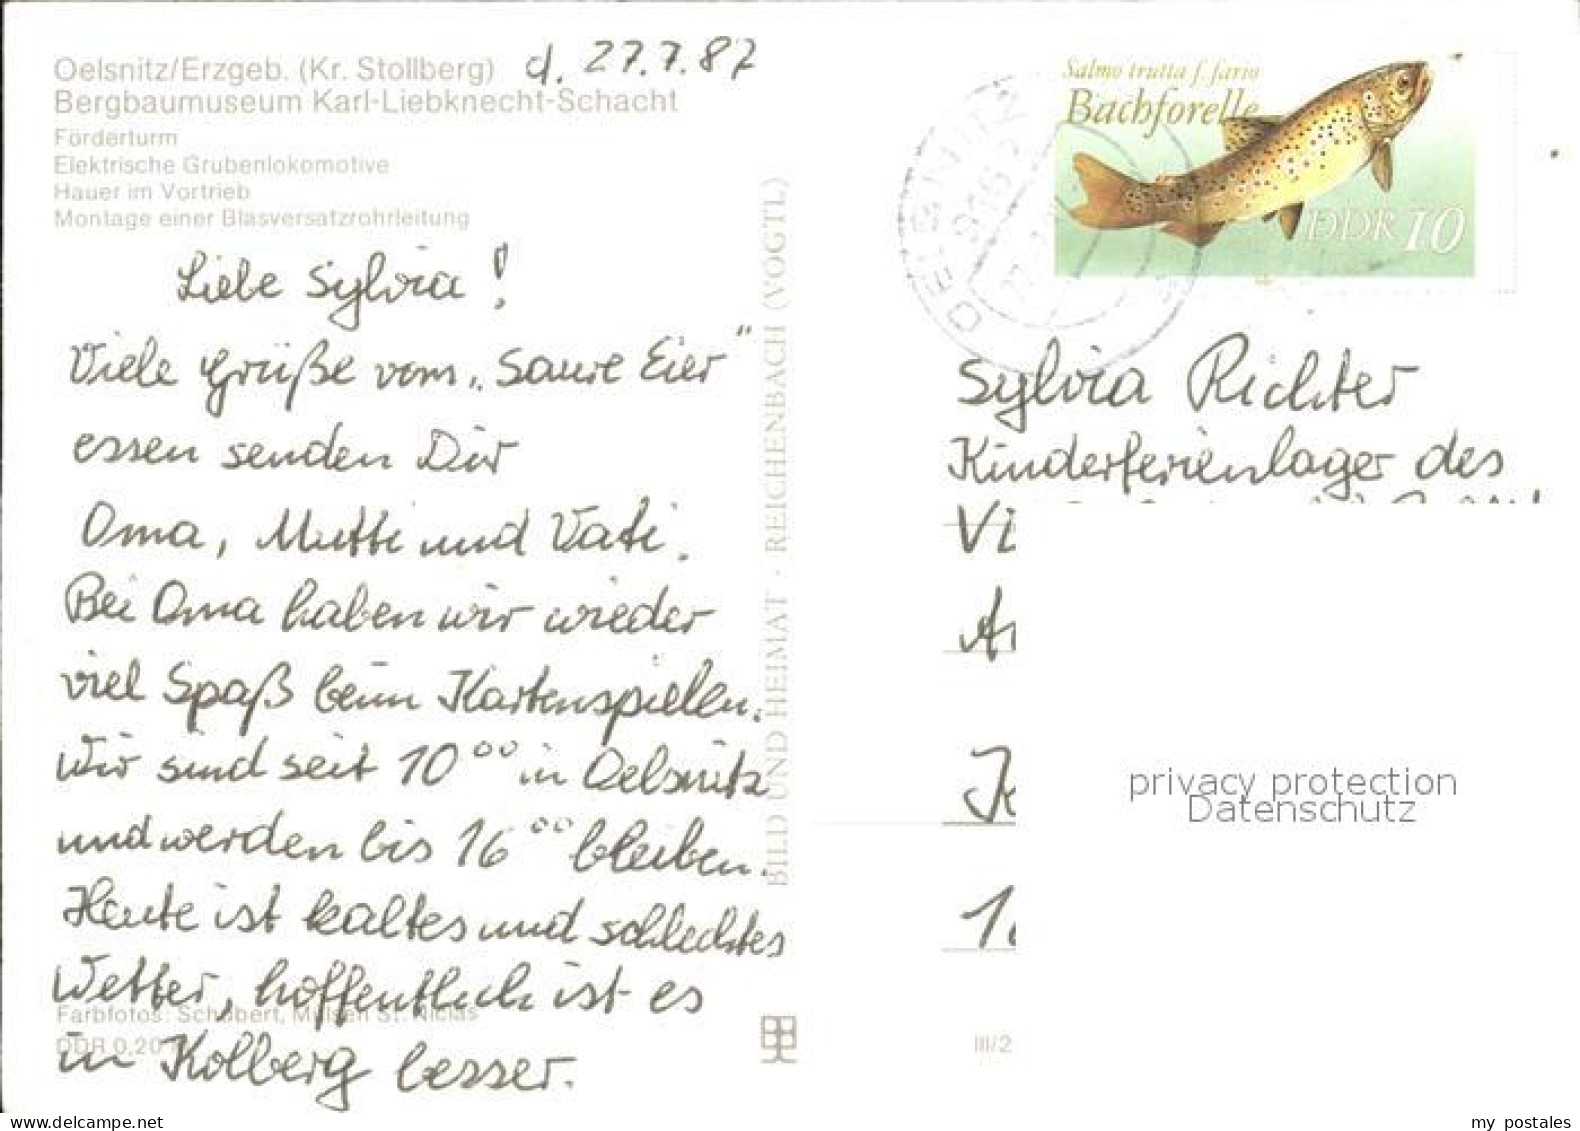 Oelsnitz/Erzgeb. (Kr. Stollberg)
d. 27.7.87
Bergbaumuseum Karl-Liebknecht-Schacht
Förderturm
Elektrische Grubenlokomotive
Hauer im Vortrieb
Montage einer Blasversatzrohrleitung
Liebe Sylvia!
Viele Grüße vom „Saure Eier"
essen senden Dir
Oma, Mutti und Vati.
Bei Oma haben wir wieder
viel Spaß beim Kartenspielen.
Wir sind seit 10⁰⁰ in Oelsnitz
und werden bis 16⁰⁰ bleiben.
Heute ist kaltes und schlechtes
Wetter, hoffentlich ist es
in Kolberg besser.
Farbfotos: Schubert, Mülsen St. Niclas
DDR 0,20
BILD UND HEIMAT · REICHENBACH (VOGTL)
Salmo trutta f. fario
Bachforelle
DDR 10
OELSNITZ
Sylvia Richter
Kinderferienlager des
III/2
privacy protection
Datenschutz
my postales